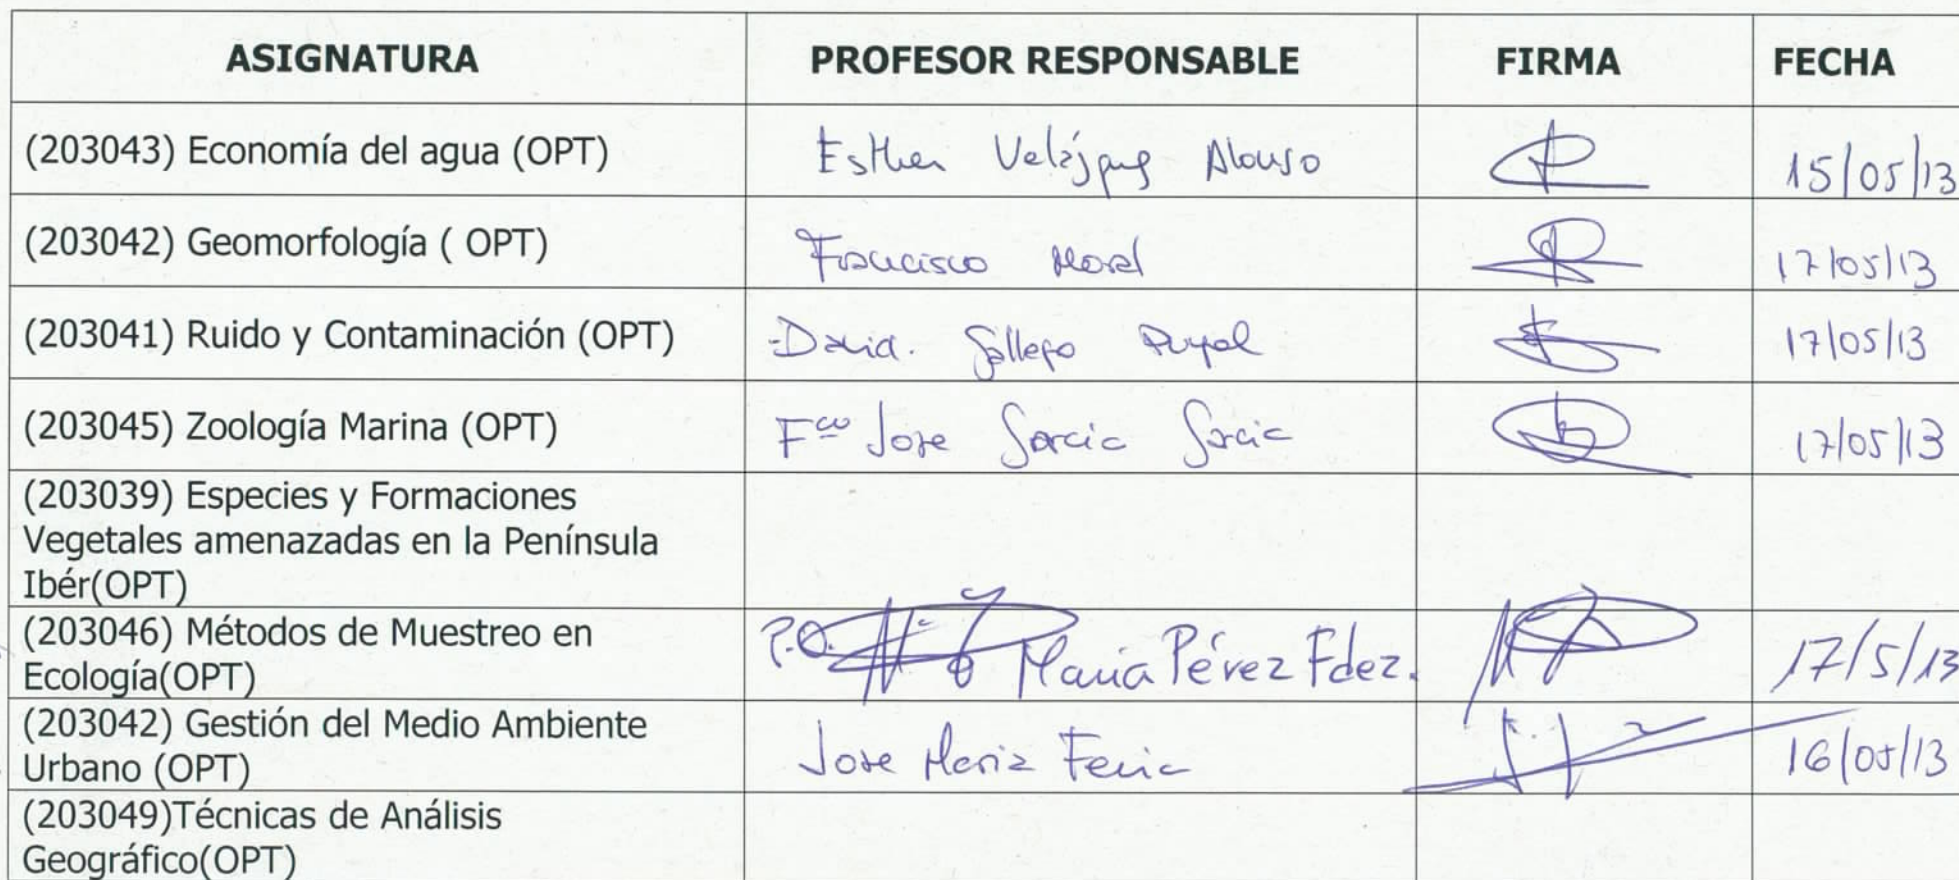 ASIGNATURA PROFESOR RESPONSABLE FIRMA FECHA
(203043) Economía del agua (OPT) Esther Velázquez Alonso 15/05/13
(203042) Geomorfología ( OPT) Francisco Moral 17/05/13
(203041) Ruido y Contaminación (OPT) David Gallego Puyol 17/05/13
(203045) Zoología Marina (OPT) Fco Jose Garcia Garcia 17/05/13
(203039) Especies y Formaciones
Vegetales amenazadas en la Península
Ibér(OPT)
(203046) Métodos de Muestreo en
Ecología(OPT) P.O. María Pérez Fdez. 17/5/13
(203042) Gestión del Medio Ambiente
Urbano (OPT) Jose Maria Feria 16/05/13
(203049)Técnicas de Análisis
Geográfico(OPT)